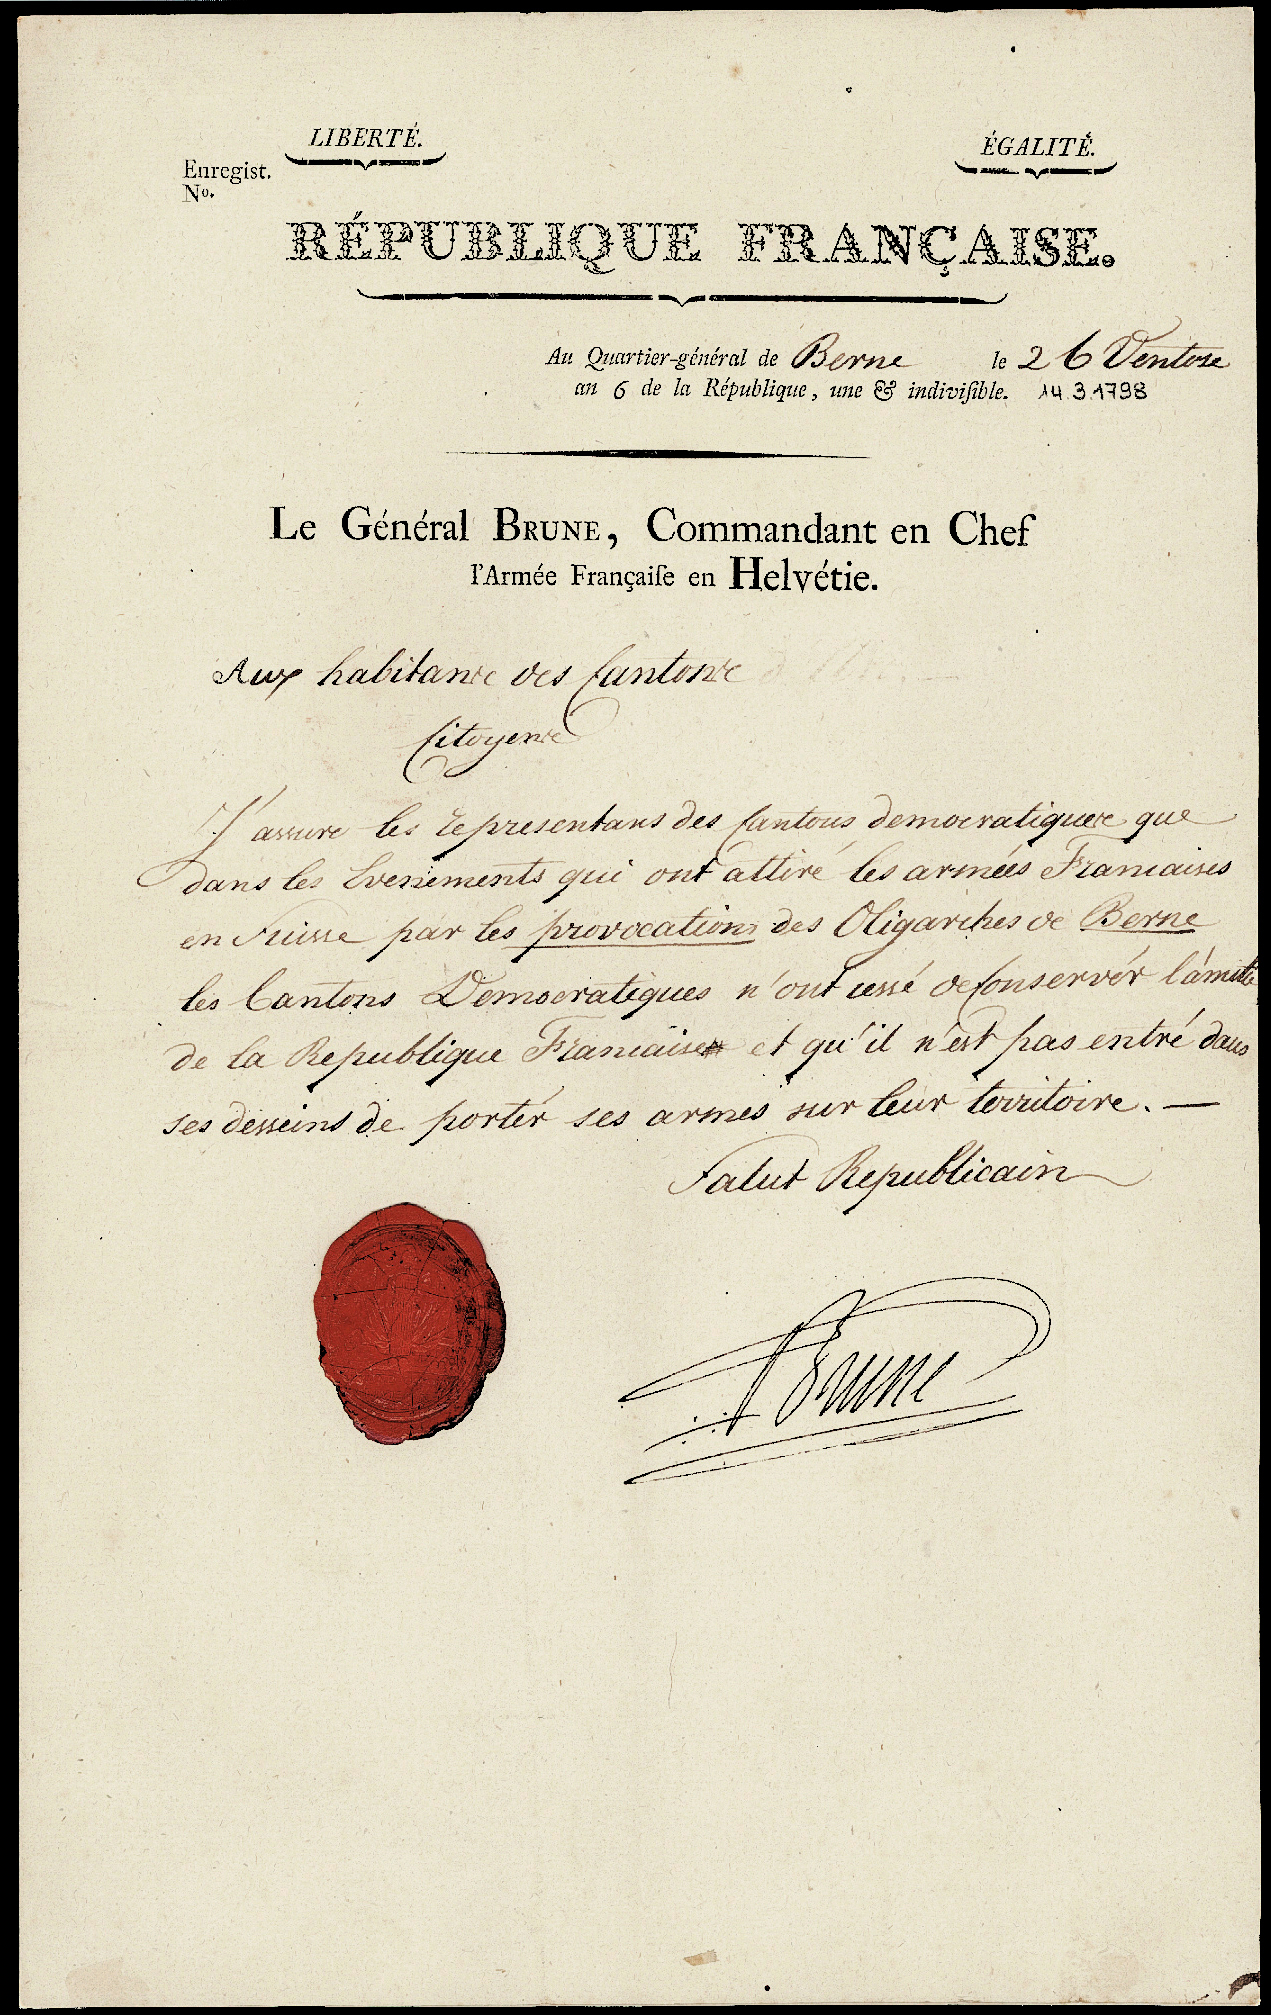 LIBERTÉ.
ÉGALITÉ.
Enregist.
No.
RÉPUBLIQUE FRANÇAISE.
Au Quartier-général de Berne le 26 Ventose
an 6 de la République, une & indiviſible. 14.3.1798
Le Général BRUNE, Commandant en Chef
l'Armée Françaiſe en Helvétie.
Aux habitans des Cantons
Citoyens
J'assure les representans des Cantons democratiques que
dans les Evenements qui ont attiré les armées Francaises
en Suisse par les provocations des Oligarches de Berne
les Cantons Democratiques n'ont cessé de Conservér l'ámitié
de la Republique Francaise et qu'il n'est pas entré dans
ses desseins de portér ses armes sur leur territoire. —
Salut Republicain
Brune